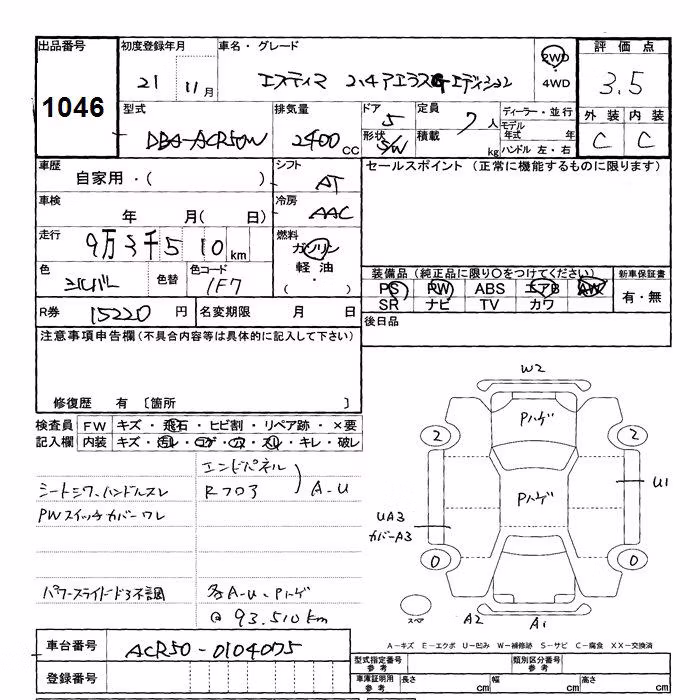 出品番号 初度登録年月 車名・グレード 2WD 4WD 評価点
1046 21 11月 エスティマ 2.4アエラスGエディション 3.5
型式 排気量 ドア 形状 定員 積載 ディーラー・並行 外装 内装
DBA-ACR50W 2400cc 5 S/W 7人 kg モデル年式 年 ハンドル 左・右 C C
車歴 自家用・( ) シフト AT セールスポイント (正常に機能するものに限ります)
車検 年 月( 日) 冷房 AAC
走行 9万3千510km 燃料 ガソリン 軽油 ( ・ )
色 シルバー 色替 色コード 1F7
装備品(純正品に限り○をつけてください) 新車保証書
PS PW ABS エアB AW 有・無
SR ナビ TV カワ
R券 15220円 名変期限 月 日 後日品
注意事項申告欄(不具合内容等は具体的に記入して下さい)
修復歴 有 〔箇所 〕
検査員 FW キズ・飛石・ヒビ割・リペア跡・×要
記入欄 内装 キズ・汚レ・コゲ・穴・スレ・キレ・破レ
エンドパネル
シートシワ、ハンドルスレ Rフロア A-U
PWスイッチカバーワレ
パワースライドドア不調 各A-U、Pハゲ
@93.510km
W2
Pハゲ
2 2
Pハゲ
U1
UA3
カバーA3
0 0
スペア A2 A1
A-キズ E-エクボ U-凹み W-補修跡 S-サビ C-腐食 XX-交換済
車台番号 ACR50-0104075
型式指定番号 参考 類別区分番号 参考
登録番号 車庫証明用 参考 長さ cm 幅 cm 高さ cm